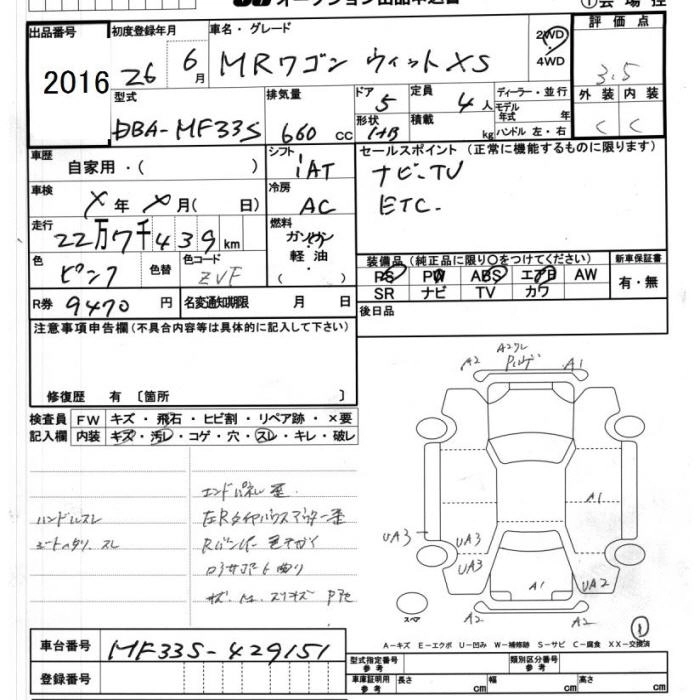 出品番号 2016
初度登録年月 26 6月
車名・グレード MRワゴン ウィット XS
2WD 4WD
評価点 3.5
型式 DBA-MF33S
排気量 660 cc
ドア 5
形状 HB
定員 4人
積載 kg
ディーラー・並行
モデル年式 年
ハンドル 左・右
外装 内装
C C
車歴 自家用・( )
シフト iAT
セールスポイント (正常に機能するものに限ります)
ナビ-TV
ETC.
車検 X年 X月( 日)
冷房 AC
走行 22万7千439km
燃料 ガソリン 軽油・( )
色 ピンク
色替
色コード ZVF
装備品 (純正品に限り〇をつけてください)
PS PW ABS エアB AW
SR ナビ TV カワ
新車保証書 有・無
R券 9470円
名変通知期限 月 日
後日品
注意事項申告欄(不具合内容等は具体的に記入して下さい)
修復歴 有〔箇所 〕
検査員記入欄
FW キズ・飛石・ヒビ割・リペア跡・×要
内装 キズ・汚レ・コゲ・穴・スレ・キレ・破レ
エンドパネル歪
ハンドルスレ
左Rタイヤハウスアウター歪
シートヘタリ、スレ
Rバンパー色ちがく
ロアサポート曲り
A2 A1
A1
UA3 UA3 UA3
A1 UA2
A2 A2
スペア
A-キズ E-エクボ U-凹み W-補修跡 S-サビ C-腐食 XX-交換済
車台番号 MF33S-429151
登録番号
型式指定番号 参考
類別区分番号 参考
車庫証明用 参考 長さ cm 幅 cm 高さ cm